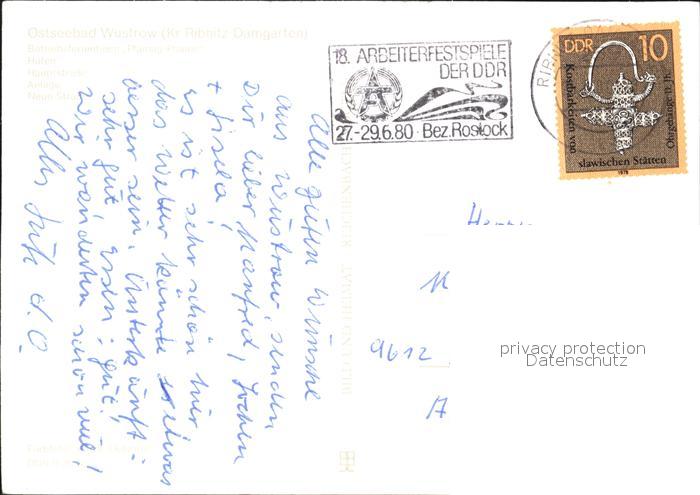 Ostseebad Wustrow (Kr Ribnitz Damgarten)
Hafen
Hauptstraße
Anlage
Neue Straße
18. ARBEITERFESTSPIELE
DER DDR
27.-29.6.80 · Bez. Rostock
DDR 10
Kostbarkeiten von
slawischen Stätten
Ohrgehänge 11. Jh.
1978
Alle guten Wünsche
aus Wustrow, senden
Dir lieber Manfred, Jochen
+ Gisela!
es ist sehr schön hier
das Wetter könnte etwas
besser sein. Unterkunft:
sehr gut, Essen: gut!
Wir wanderten schon viel!
Alles Gute d. O.
BILD UND HEIMAT REICHENBACH
9612
privacy protection
Datenschutz